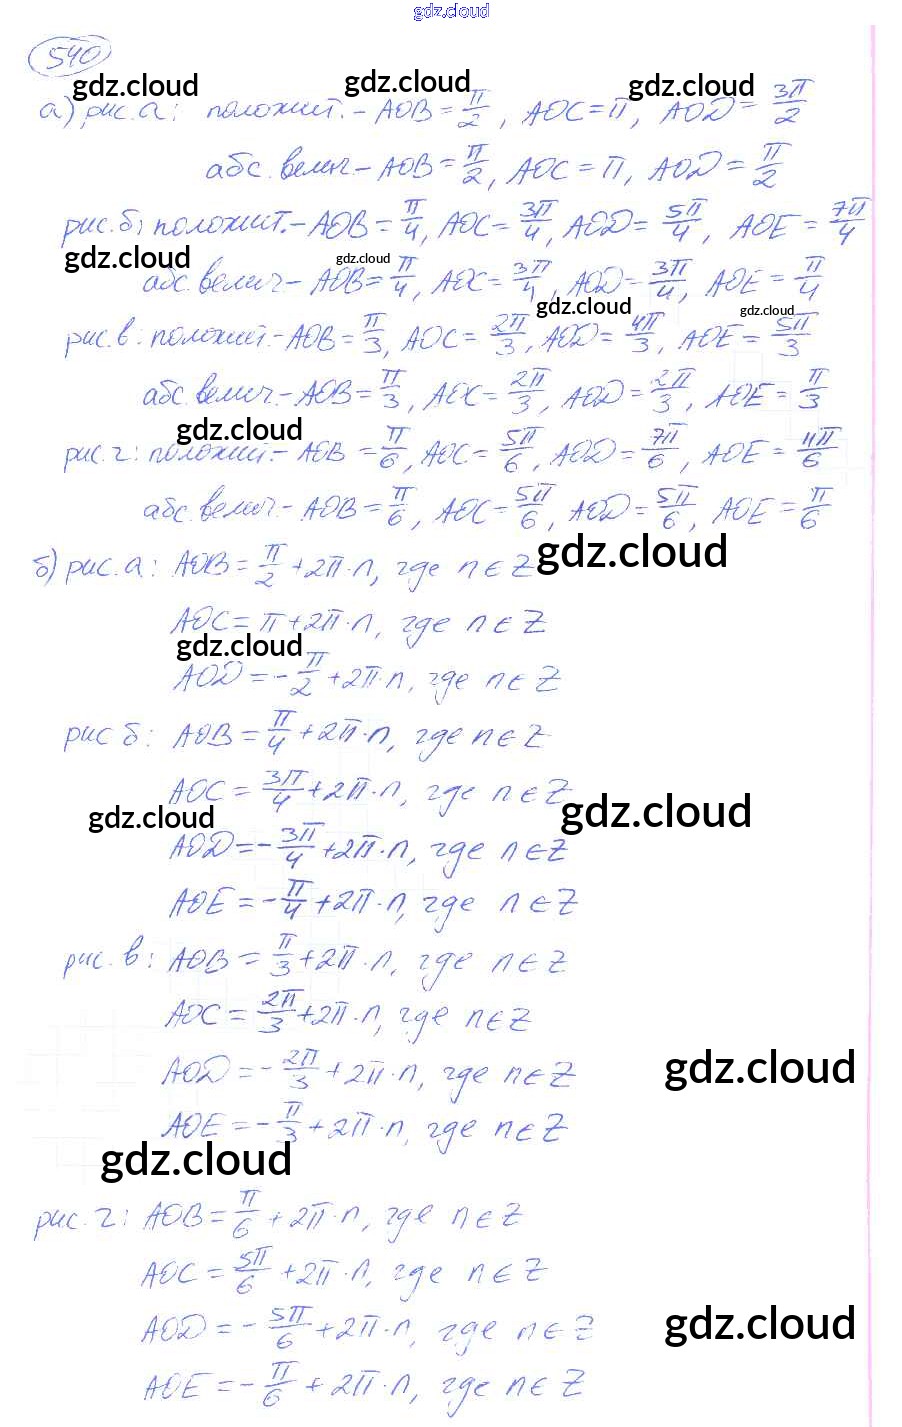 gdz.cloud
540
gdz.cloud gdz.cloud gdz.cloud
а) рис. а: положит. - AOB = π/2, AOC = π, AOD = 3π/2
абс. велич - AOB = π/2, AOC = π, AOD = π/2
рис. б: положит. - AOB = π/4, AOC = 3π/4, AOD = 5π/4, AOE = 7π/4
gdz.cloud gdz.cloud
абс. велич - AOB = π/4, AOC = 3π/4, AOD = 3π/4, AOE = π/4
gdz.cloud gdz.cloud
рис. в: положит. - AOB = π/3, AOC = 2π/3, AOD = 4π/3, AOE = 5π/3
абс. велич. - AOB = π/3, AOC = 2π/3, AOD = 2π/3, AOE = π/3
gdz.cloud
рис. г: положит. - AOB = π/6, AOC = 5π/6, AOD = 7π/6, AOE = 11π/6
абс. велич. - AOB = π/6, AOC = 5π/6, AOD = 5π/6, AOE = π/6
б) рис. а: AOB = π/2 + 2π·n, где n ∈ Z gdz.cloud
AOC = π + 2π·n, где n ∈ Z
gdz.cloud
AOD = -π/2 + 2π·n, где n ∈ Z
рис б: AOB = π/4 + 2π·n, где n ∈ Z
AOC = 3π/4 + 2π·n, где n ∈ Z gdz.cloud
gdz.cloud
AOD = -3π/4 + 2π·n, где n ∈ Z
AOE = -π/4 + 2π·n, где n ∈ Z
рис. в: AOB = π/3 + 2π·n, где n ∈ Z
AOC = 2π/3 + 2π·n, где n ∈ Z
AOD = -2π/3 + 2π·n, где n ∈ Z gdz.cloud
AOE = -π/3 + 2π·n, где n ∈ Z
gdz.cloud
рис. г: AOB = π/6 + 2π·n, где n ∈ Z
AOC = 5π/6 + 2π·n, где n ∈ Z
AOD = -5π/6 + 2π·n, где n ∈ Z gdz.cloud
AOE = -π/6 + 2π·n, где n ∈ Z